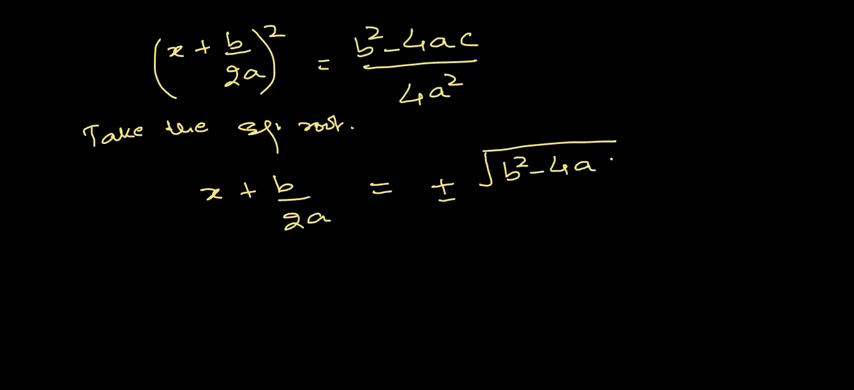 (x + b/2a)² = b²-4ac/4a²
Take the sq. root.
x + b/2a = ± √b²-4a